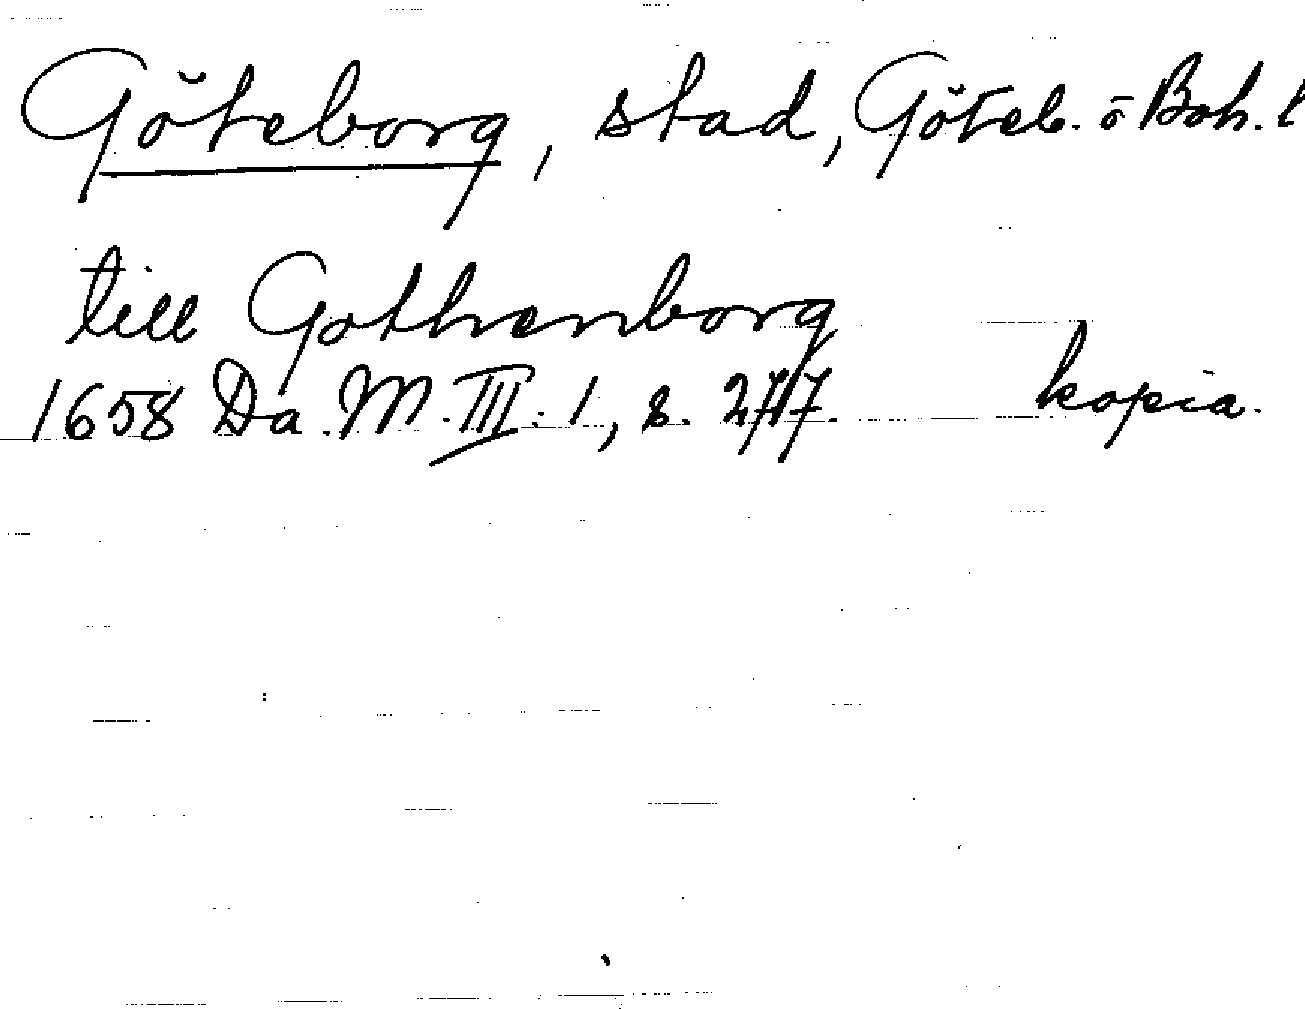 Göteborg, stad, Göteb. o Boh. l
till Gothenborg
1658 Da. M. III: 1, s. 277. kopia.